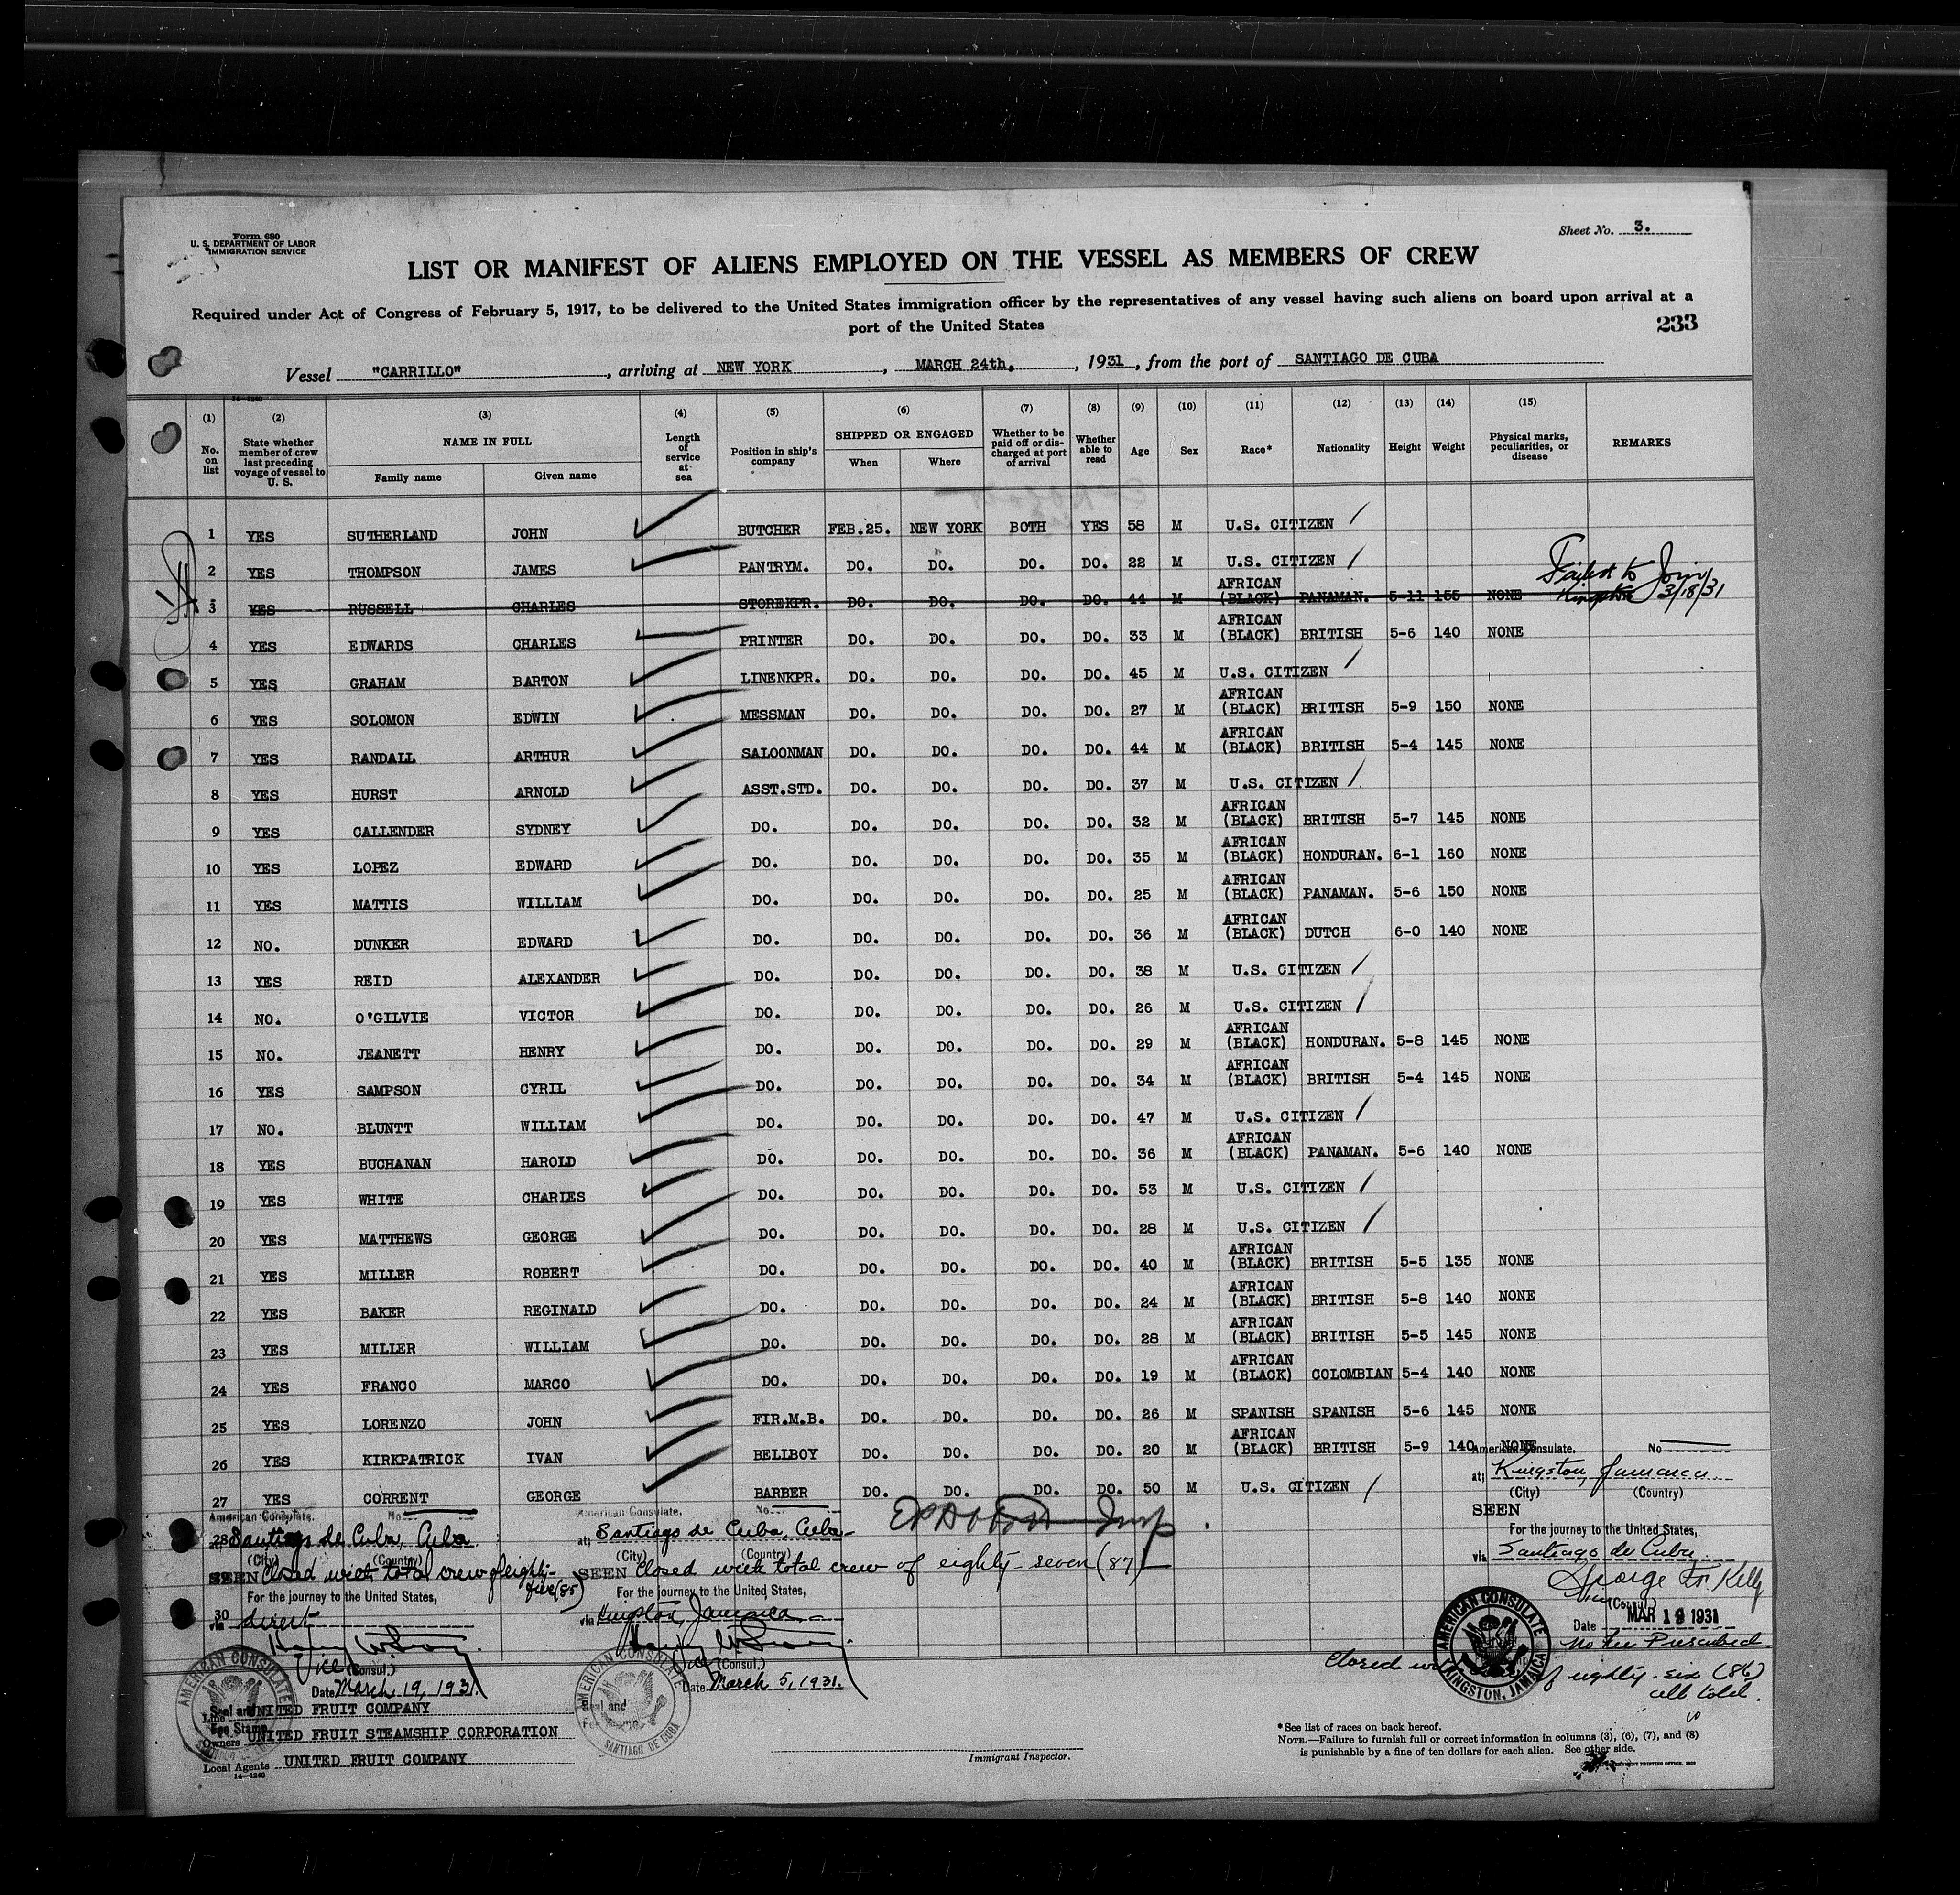 Form 680
U. S. DEPARTMENT OF LABOR
IMMIGRATION SERVICE
Sheet No. 3.
LIST OR MANIFEST OF ALIENS EMPLOYED ON THE VESSEL AS MEMBERS OF CREW
Required under Act of Congress of February 5, 1917, to be delivered to the United States immigration officer by the representatives of any vessel having such aliens on board upon arrival at a
port of the United States
233
Vessel "CARRILLO", arriving at NEW YORK, MARCH 24th, 1931, from the port of SANTIAGO DE CUBA
14-1240
(1) (2) (3) (4) (5) (6) (7) (8) (9) (10) (11) (12) (13) (14) (15)
No. on list
State whether member of crew last preceding voyage of vessel to U. S.
NAME IN FULL
Family name Given name
Length of service at sea
Position in ship's company
SHIPPED OR ENGAGED
When Where
Whether to be paid off or discharged at port of arrival
Whether able to read
Age Sex Race* Nationality Height Weight
Physical marks, peculiarities, or disease
REMARKS
1 YES SUTHERLAND JOHN BUTCHER FEB.25. NEW YORK BOTH YES 58 M U.S. CITIZEN
2 YES THOMPSON JAMES PANTRYM. DO. DO. DO. DO. 22 M U.S. CITIZEN
3 YES RUSSELL CHARLES STOREKPR. DO. DO. DO. DO. 44 M AFRICAN (BLACK) PANAMAN. 5-11 155 NONE Failed to Join Kingston 3/18/31
4 YES EDWARDS CHARLES PRINTER DO. DO. DO. DO. 33 M AFRICAN (BLACK) BRITISH 5-6 140 NONE
5 YES GRAHAM BARTON LINENKPR. DO. DO. DO. DO. 45 M U.S. CITIZEN
6 YES SOLOMON EDWIN MESSMAN DO. DO. DO. DO. 27 M AFRICAN (BLACK) BRITISH 5-9 150 NONE
7 YES RANDALL ARTHUR SALOONMAN DO. DO. DO. DO. 44 M AFRICAN (BLACK) BRITISH 5-4 145 NONE
8 YES HURST ARNOLD ASST.STD. DO. DO. DO. DO. 37 M U.S. CITIZEN
9 YES CALLENDER SYDNEY DO. DO. DO. DO. DO. 32 M AFRICAN (BLACK) BRITISH 5-7 145 NONE
10 YES LOPEZ EDWARD DO. DO. DO. DO. DO. 35 M AFRICAN (BLACK) HONDURAN. 6-1 160 NONE
11 YES MATTIS WILLIAM DO. DO. DO. DO. DO. 25 M AFRICAN (BLACK) PANAMAN. 5-6 150 NONE
12 NO. DUNKER EDWARD DO. DO. DO. DO. DO. 36 M AFRICAN (BLACK) DUTCH 6-0 140 NONE
13 YES REID ALEXANDER DO. DO. DO. DO. DO. 38 M U.S. CITIZEN
14 NO. O'GILVIE VICTOR DO. DO. DO. DO. DO. 26 M U.S. CITIZEN
15 NO. JEANETT HENRY DO. DO. DO. DO. DO. 29 M AFRICAN (BLACK) HONDURAN. 5-8 145 NONE
16 YES SAMPSON CYRIL DO. DO. DO. DO. DO. 34 M AFRICAN (BLACK) BRITISH 5-4 145 NONE
17 NO. BLUNTT WILLIAM DO. DO. DO. DO. DO. 47 M U.S. CITIZEN
18 YES BUCHANAN HAROLD DO. DO. DO. DO. DO. 36 M AFRICAN (BLACK) PANAMAN. 5-6 140 NONE
19 YES WHITE CHARLES DO. DO. DO. DO. DO. 53 M U.S. CITIZEN
20 YES MATTHEWS GEORGE DO. DO. DO. DO. DO. 28 M U.S. CITIZEN
21 YES MILLER ROBERT DO. DO. DO. DO. DO. 40 M AFRICAN (BLACK) BRITISH 5-5 135 NONE
22 YES BAKER REGINALD DO. DO. DO. DO. DO. 24 M AFRICAN (BLACK) BRITISH 5-8 140 NONE
23 YES MILLER WILLIAM DO. DO. DO. DO. DO. 28 M AFRICAN (BLACK) BRITISH 5-5 145 NONE
24 YES FRANCO MARCO DO. DO. DO. DO. DO. 19 M AFRICAN (BLACK) COLOMBIAN 5-4 140 NONE
25 YES LORENZO JOHN FIR.M.B. DO. DO. DO. DO. 26 M SPANISH SPANISH 5-6 145 NONE
26 YES KIRKPATRICK IVAN BELLBOY DO. DO. DO. DO. 20 M AFRICAN (BLACK) BRITISH 5-9 140 NONE
27 YES CORRENT GEORGE BARBER DO. DO. DO. DO. 50 M U.S. CITIZEN
28
30
American Consulate. No
Santiago de Cuba, Cuba
(City) (Country)
SEEN Closed with total crew of eighty-five (85)
For the journey to the United States,
via direct
Vice (Consul.)
Date March 19, 1931
AMERICAN CONSULATE
Seal and
Fee Stamp
American Consulate. No
at Santiago de Cuba, Cuba
(City) (Country)
SEEN Closed with total crew of eighty-seven (87)
For the journey to the United States,
via Kingston, Jamaica
Vice (Consul.)
Date March 5, 1931.
AMERICAN CONSULATE
SANTIAGO DE CUBA
Seal and
Insp.
American Consulate. No
at Kingston, Jamaica
(City) (Country)
SEEN
For the journey to the United States,
via Santiago de Cuba
George F. Kelly
Vice (Consul.)
Date MAR 19 1931
No Fee Prescribed
AMERICAN CONSULATE
KINGSTON, JAMAICA
Closed of eighty-six (86)
all told.
Line UNITED FRUIT COMPANY
Owners UNITED FRUIT STEAMSHIP CORPORATION
Local Agents UNITED FRUIT COMPANY
14-1240
Immigrant Inspector.
*See list of races on back hereof.
NOTE.—Failure to furnish full or correct information in columns (3), (6), (7), and (8)
is punishable by a fine of ten dollars for each alien. See other side.